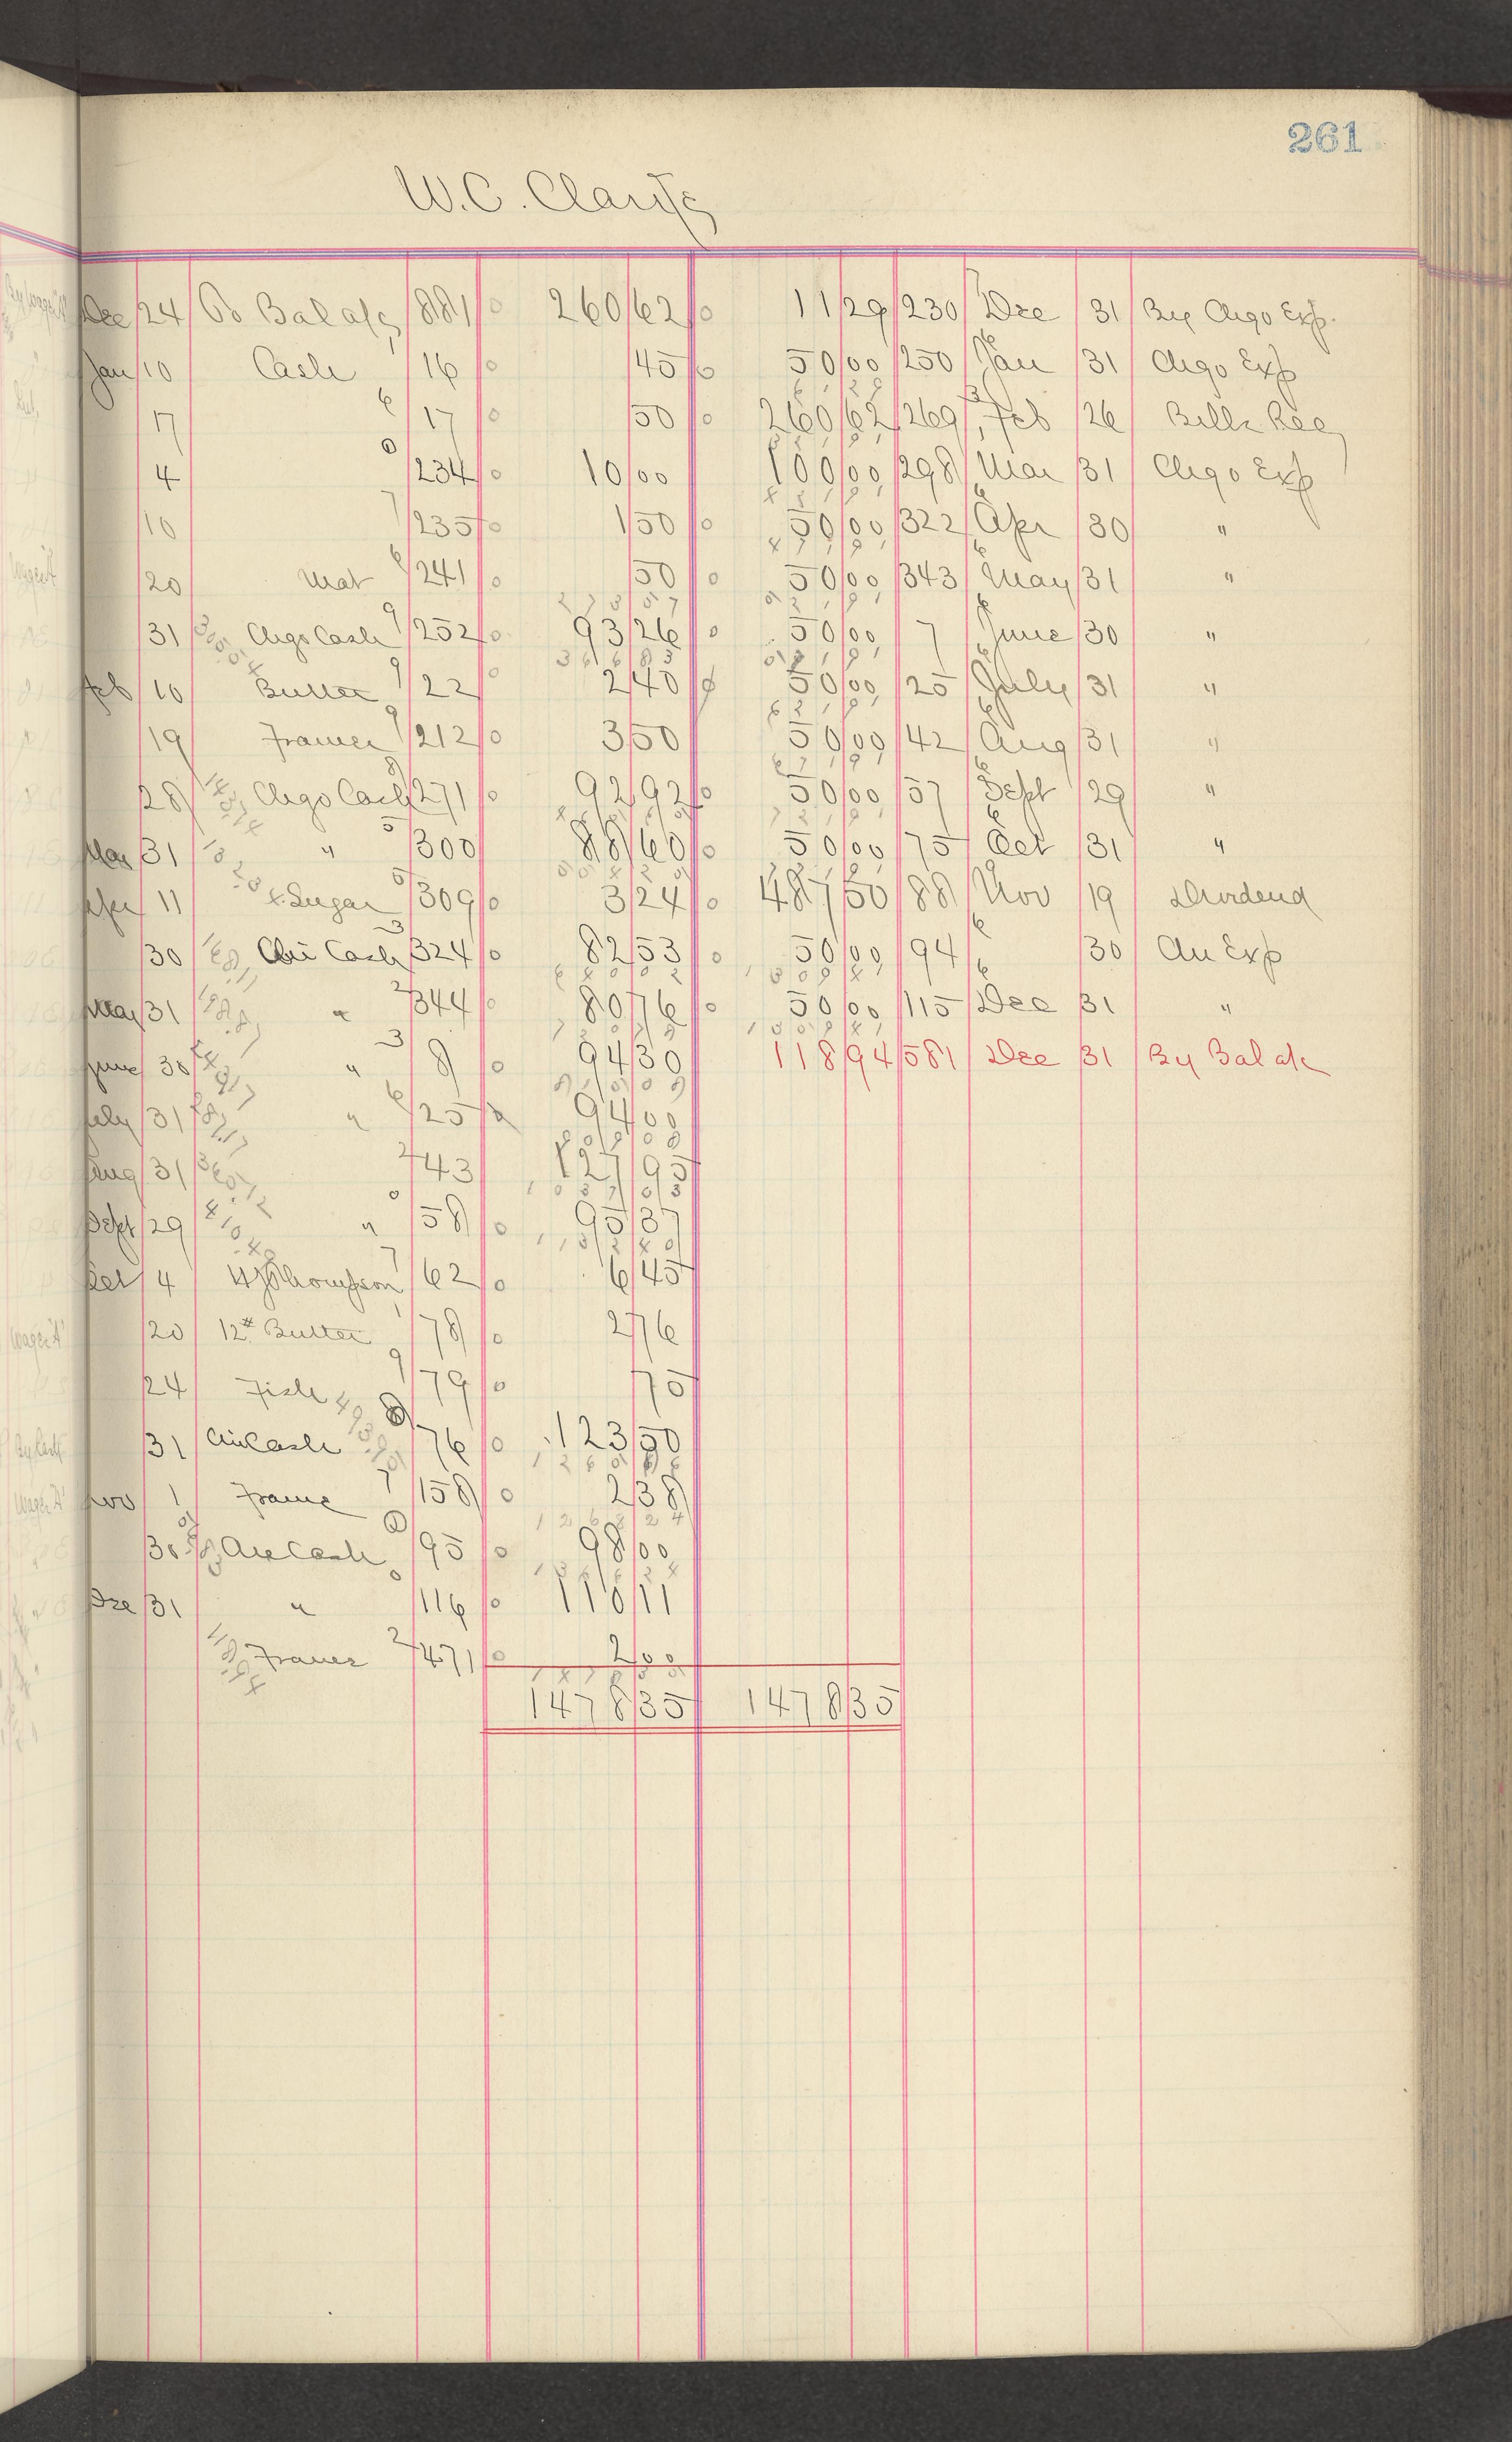 261
W.C.
Dec 24 To Bal a/c 881 260 62 11 29 230 Dec 31 By Chgo Exp.
Jan 10 Cash 16 45 50 00 250 Jan 31 Chgo Exp
17 17 50 260 62 269 Feb 26 Bills Rec
4 234 10 00 100 00 298 Mar 31 Chgo Exp
10 235 1 50 50 00 322 Apr 30 "
20 Mat 241 50 50 00 343 May 31 "
31 Chgo Cash 252 93 26 50 00 7 June 30 "
Feb 10 Butter 22 2 40 50 00 25 July 31 "
19 212 3 50 50 00 42 Aug 31 "
28 Chgo Cash 271 92 92 50 00 57 Sept 29 "
Mar 31 " 300 88 60 50 00 75 Oct 31 "
Apr 11 Sugar 309 3 24 487 50 88 Nov 19 Dividend
30 Chi Cash 324 82 53 50 00 94 30 Au Exp
May 31 " 344 80 76 50 00 115 Dec 31 "
June 30 " 8 94 30 118 94 581 Dec 31 By Bal a/c
July 31 " 25 94 00
Aug 31 43 127 95
Sept 29 " 58 95 37
Oct 4 Thompson 62 6 45
20 12# Butter 78 2 76
24 Fish 79 75
31 Cash 76 123 50
Nov 1 158 2 38
30 Cash 95 98 00
Dec 31 " 116 110 11
471 2 00
1478 35 1478 35